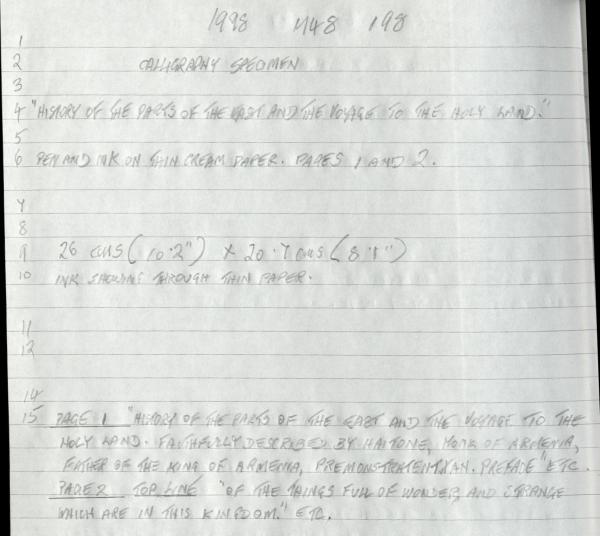 1998 748 198
1
2 CALLIGRAPHY SPECIMEN
3
4 "HISTORY OF THE PARTS OF THE EAST AND THE VOYAGE TO THE HOLY LAND."
5
6 PEN AND INK ON THIN CREAM PAPER. PAGES 1 AND 2.
7
8
9 26 cms (10.2") x 20.7 cms (8.1")
10 INK SHOWING THROUGH THIN PAPER.
11
12
14
15 PAGE 1 "HISTORY OF THE PARTS OF THE EAST AND THE VOYAGE TO THE
HOLY LAND. FAITHFULLY DESCRIBED BY HAITONE, MONK OF ARMENIA,
FATHER OF THE KING OF ARMENIA, PREMONSTRATENSIAN. PREFACE" ETC.
PAGE 2 TOP LINE "OF THE THINGS FULL OF WONDER, AND STRANGE
WHICH ARE IN THIS KINGDOM." ETC.